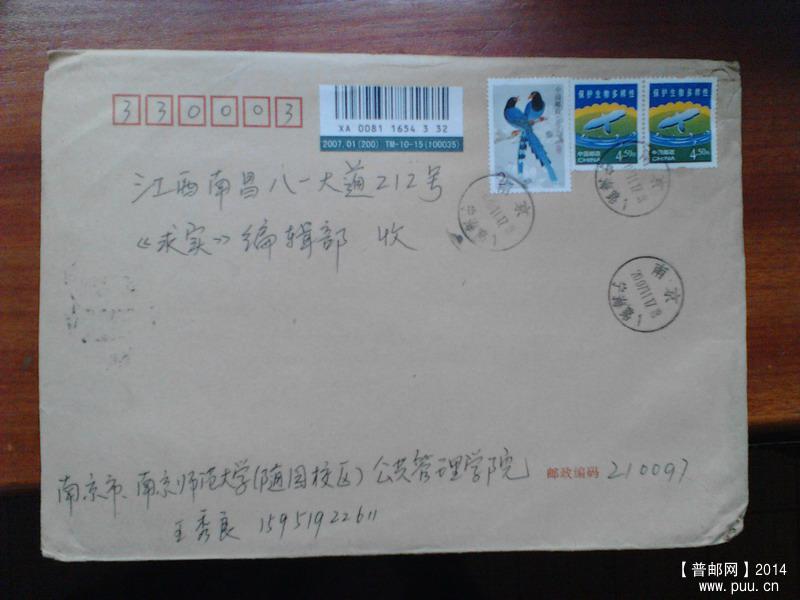 330003
XA 0081 1654 3 32
2007.01(200) TM-10-15(100035)
中国邮政
保护生物多样性
中国邮政
CHINA
4.50元
保护生物多样性
中国邮政
CHINA
4.50元
江西南昌八一大道212号
《求实》编辑部 收
南京
南京
南京
南京市、南京师范大学(随园校区)公共管理学院
邮政编码 210097
王秀良 15951922611
【普邮网】2014
www.puu.cn